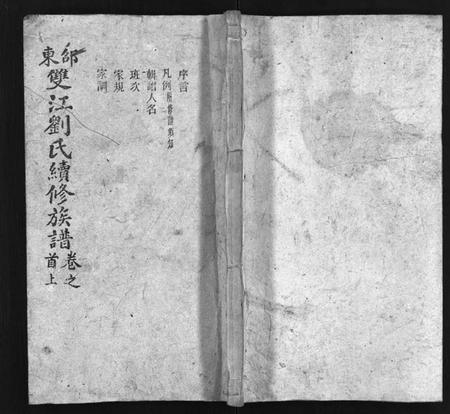 邵東
雙江劉氏續修族譜
卷之首上
序言
凡例
輯譜人名
班次
家規
家訓